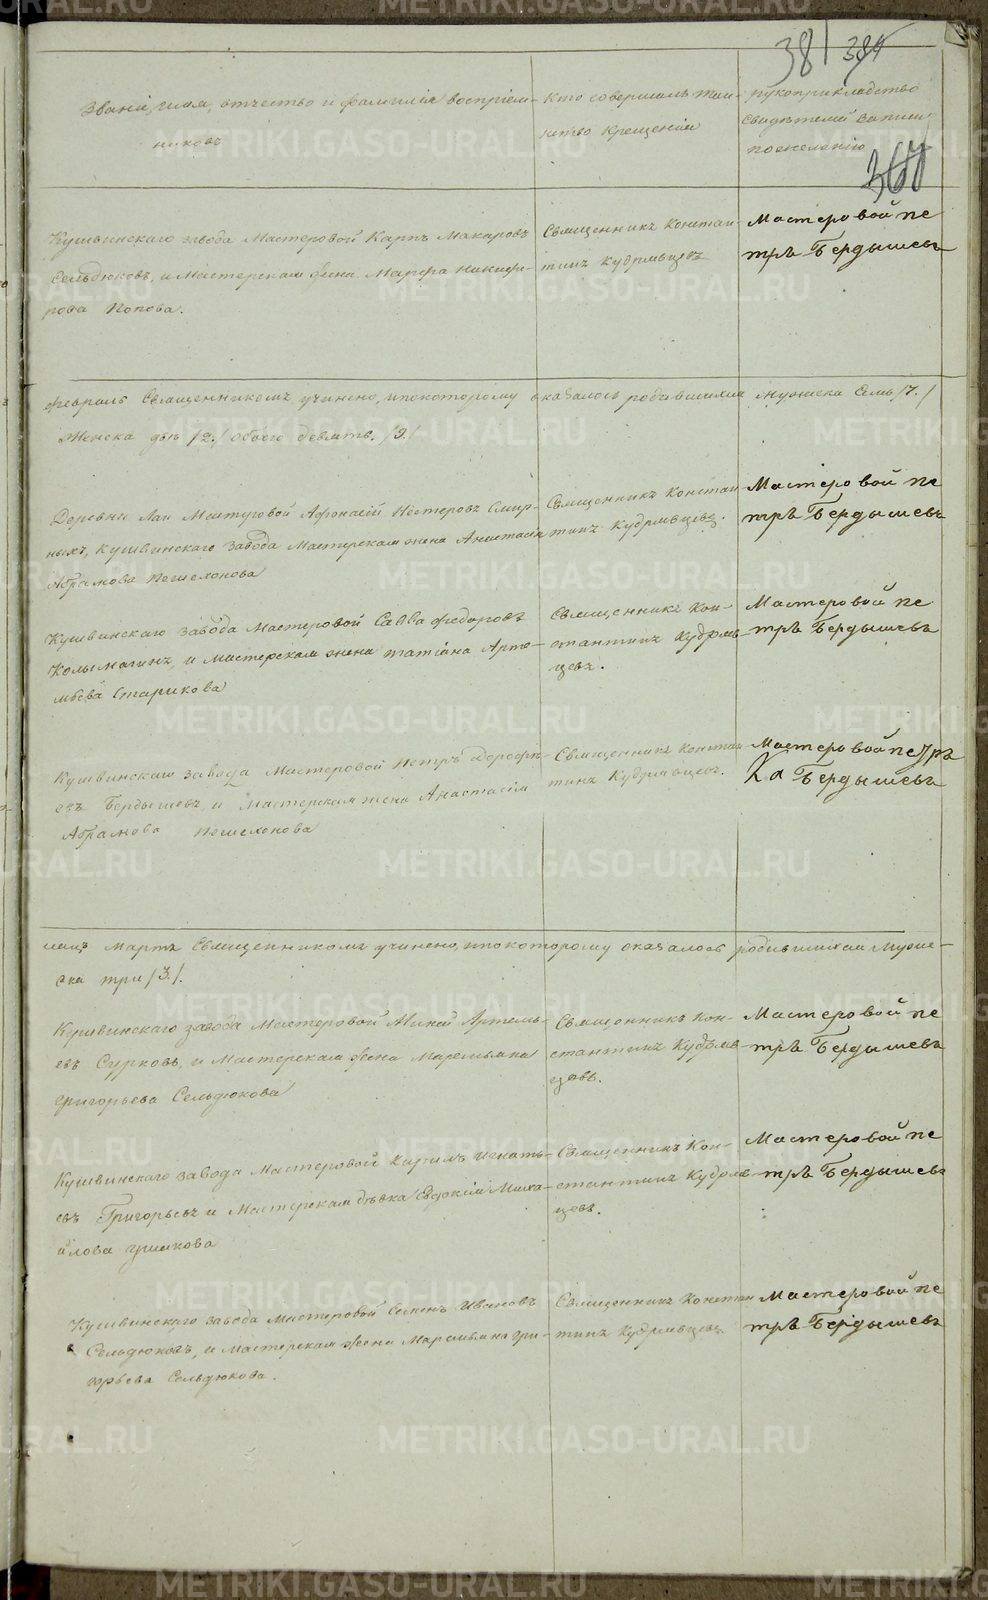 381 384
Званіе, имя, отчество и фамилія воспріем-
никовъ
Кто совершалъ таин-
ство крещенія
рукоприкладство
свидѣтелей записи
по желанію
Кушвинскаго завода Мастеровой Карпъ Макаровъ
Сельдюковъ, и Мастерская жена Марфа Никифо-
рова Попова.
Священникъ Констан-
тинъ Кудрявцевъ
Мастеровой Пе
тръ Бердышевъ
февраль Священникомъ учинено, ипокоторому оказалось родившихся Мужеска Семь /7./
Женска два /2./ Обоего девять. /9./
Деревни Лаи Мастеровой Афонасій Нестеровъ Смир-
ныхъ, Кушвинскаго Завода Мастерская жена Анастасія
Абрамова Пешехонова
Священникъ Констан
тинъ Кудрявцевъ.
Мастеровой Пе
тръ Бердышевъ
Кушвинскаго завода Мастеровой Савва Федоровъ
Колымагинъ, и Мастерская жена Татіана Арте-
мьева Старикова
Священникъ Кон-
стантинъ Кудряв-
цевъ.
Мастеровой Пе
тръ Бердышевъ
Кушвинскаго завода Мастеровой Петръ Дорофѣ-
евъ Бердышевъ и Мастерская жена Анастасія
Абрамова Пешехонова
Священникъ Констан
тинъ Кудрявцевъ.
Мастеровой Петръ
Ка Бердышевъ
мацъ Мартъ Священникомъ учинено, ипокоторому оказалось родившихся Муже-
ска три /3./
Кушвинскаго завода Мастеровой Миней Артемь-
евъ Сурковъ, и Мастерская жена Маремьяна
Григорьева Сельдюкова
Священникъ Кон-
стантинъ Кудряв-
цевъ.
Мастеровой Пе
тръ Бердышевъ
Кушвинскаго завода Мастеровой Кирилъ Игнать-
евъ Григорьевъ и Мастерская дѣвка Евдокія Миха-
йлова Гришкова
Священникъ Кон-
стантинъ Кудряв-
цевъ.
Мастеровой Пе
тръ Бердышевъ
Кушвинскаго завода Мастеровой Семенъ Ивановъ
Сельдюковъ, и Мастерская жена Маремьяна Гри-
горьева Сельдюкова.
Священникъ Констан
тинъ Кудрявцевъ
Мастеровой Пе
тръ Бердышевъ
METRIKI.GASO-URAL.RU